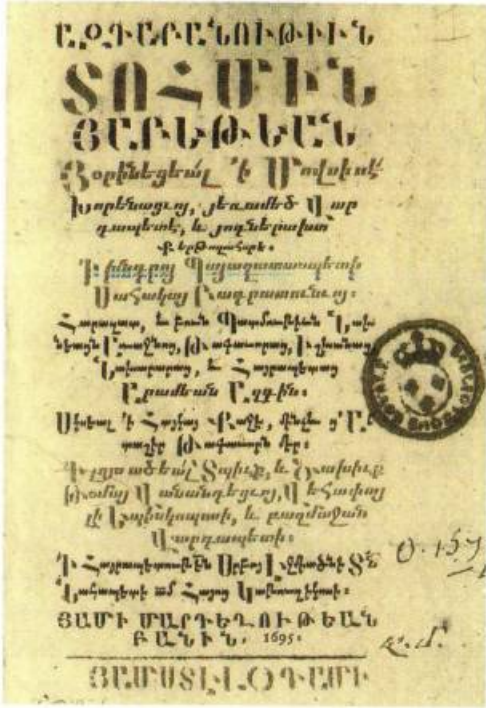 ԱԶԳԱԲԱՆՈՒԹԻՒՆ
ՏՈՀՄԻՆ
ՅԱԲԵԹԵԱՆ
Յօրինեցեալ 'ի Մովսիսէ
Խորենացւոյ, յեռամեծ Վար
դապետէ, և յոգներախտ
Քերթողահօրէ:
'Ի խնդրոյ Պայազատապետի
Սահակայ Բագրատունւոյ:
Հարազատ, և բուն Պատմութիւն Նախ
նեացն Թագաւորաց, Իշխանաց
Նախարարաց, և Հայրապետաց
Արամեան Ազգին:
Սկսեալ 'ի Հայկայ Քաջէ, մինչև ց'Ար
տաշիր Թագաւորն մեր:
'Ի լոյս ածեալ Տպիւք, և Ծախիւք
Թօմայ Վանանդեցւոյ,
լի Եպիսկոպոսի, և բազմաջան
Վարդապետի:
'Ի Սրբոյ Էջմիածնի Տն
Նահապետի ամ Հայոց Կաթողիկոսի:
ՅԱՄԻ ՄԱՐԴԵՂՈՒԹԵԱՆ
ԲԱՆԻՆ, 1695:
ՅԱՄՍՏԷԼՕԴԱՄԻ